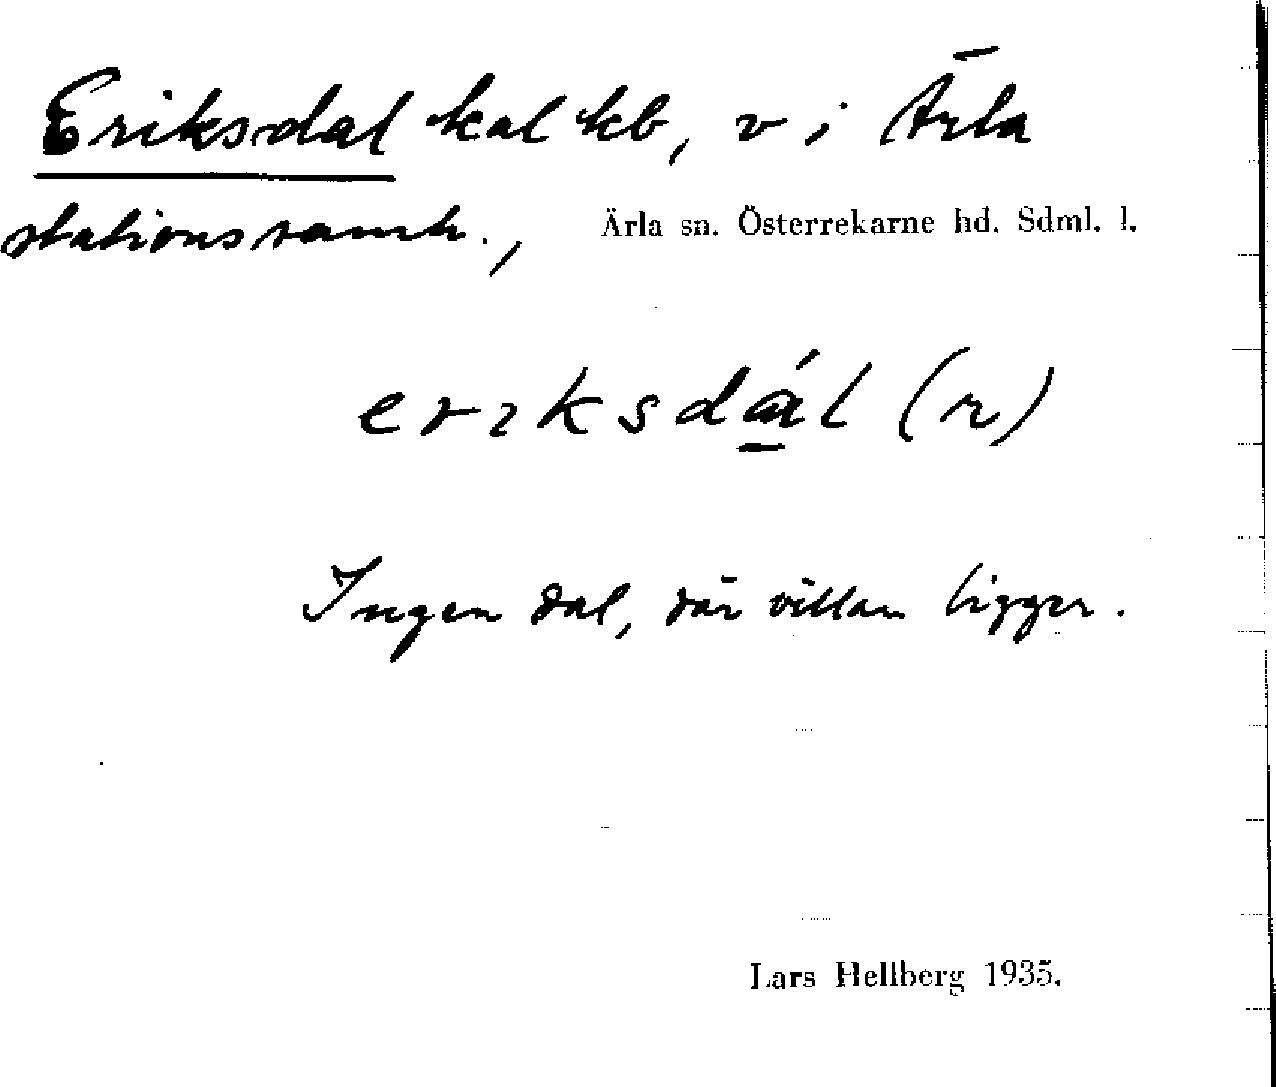 Eriksdal kal kb, v i Ärla
stationssamh., Ärla sn. Österrekarne hd. Sdml. l.
erıksdál (n)
Ingen dal, där villan ligger.
Lars Hellberg 1935.